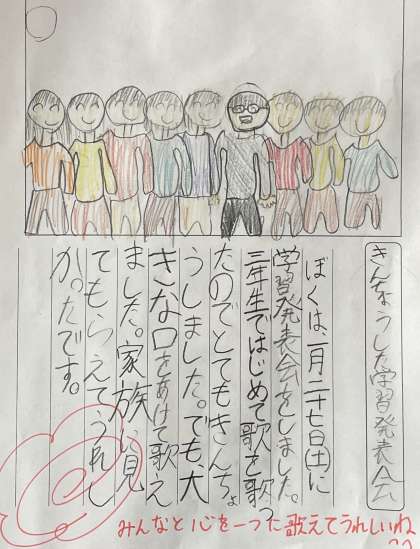 きんちょうした学習発表会
ぼくは、一月二十七日(土)に
学習発表会をしました。
三年生ではじめて歌を歌っ
たのでとてもきんちょ
うしました。でも、大
きな口をあけて歌え
ました。家族に見
てもらえてうれし
かったです。
みんなと心を一つに歌えてうれしいね